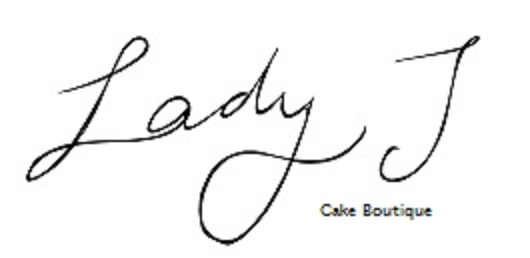 Lady J
Cake Boutique